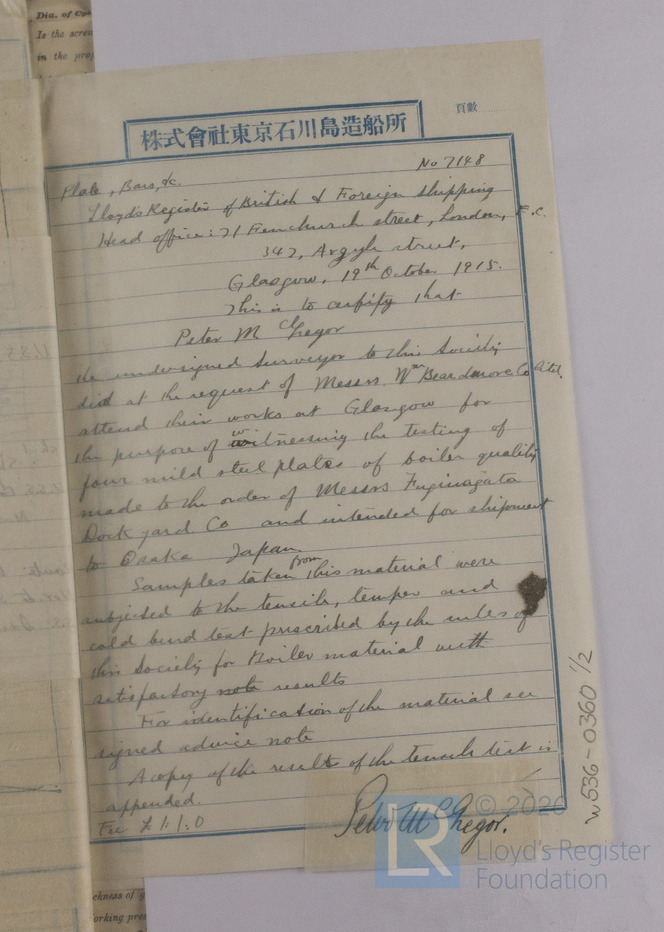 Dia. of
Is the screw
in the pro
頁數
株式會社東京石川島造船所
No 7148
Plate, Bars, &c.
Lloyd's Register of British & Foreign shipping
Head office: 71 Fenchurch street, London, E.C.
342, Argyle street,
Glasgow, 19th October 1915.
This is to certify that
Peter McGregor
the undersigned Surveyor to this Society
did at the request of Messrs. Wm Beardmore & Co Ltd.
attend their works at Glasgow for
the purpose of witnessing the testing of
four mild steel plates of boiler quality
made to the order of Messrs Fuginagata
Dock yard Co and intended for shipment
to Osaka Japan.
Samples taken from this material were
subjected to the tensile, temper and
cold bend test prescribed by the rules of
this Society for Boiler material with
satisfactory note results
For identification of the material see
signed advice note
A copy of the results of the tensile test is
appended.
Fee £1:1:0
Peter McGregor.
W536-0360 1/2
ckness of
orking pres
© 2026
LR
Lloyd's Register
Foundation